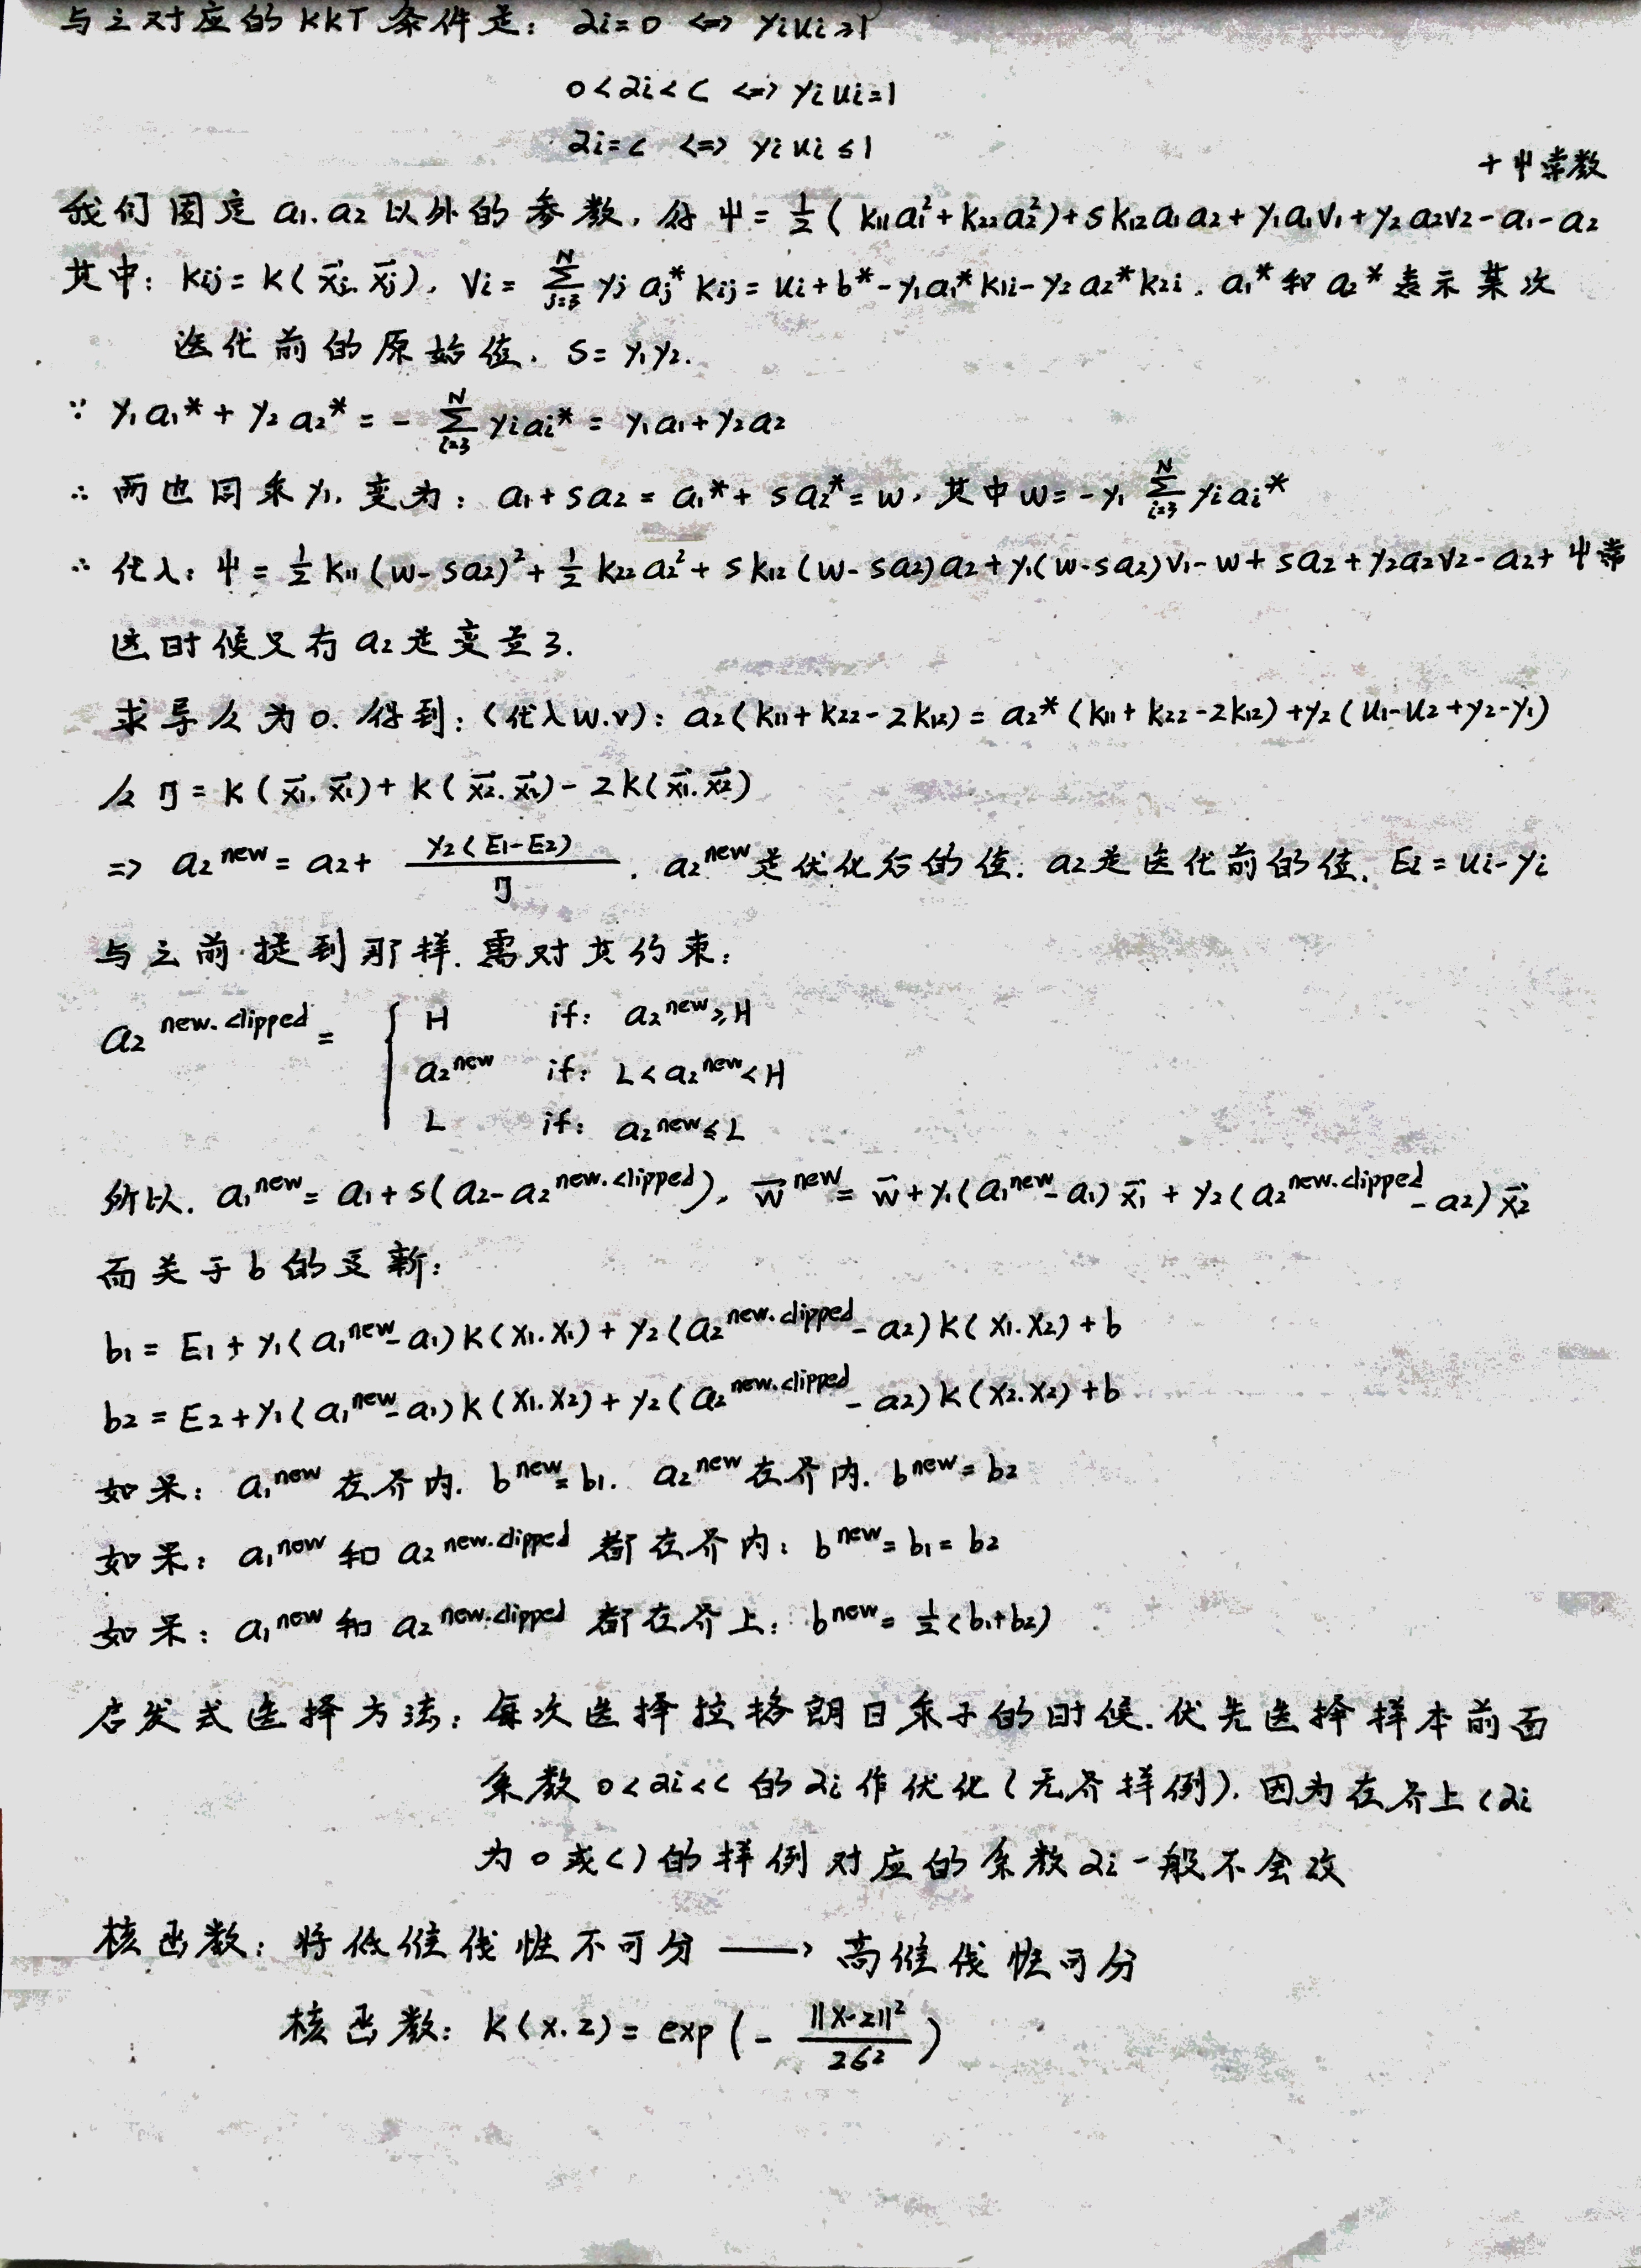 与之对应的KKT条件是: αi=0 <=> yiui≥1
0<αi<C <=> yiui=1
αi=C <=> yiui≤1
+ψ常数
我们固定a₁.a₂以外的参数, 得ψ=½(k₁₁a₁²+k₂₂a₂²)+sk₁₂a₁a₂+y₁a₁v₁+y₂a₂v₂-a₁-a₂
其中: kij=k(x⃗i.x⃗j), Vi=∑_{j=3}^{N} yjaj*kij=ui+b*-y₁a₁*k₁i-y₂a₂*k₂i. a₁*和a₂*表示某次
迭代前的原始值. s=y₁y₂.
∵ y₁a₁*+y₂a₂*=-∑_{i=3}^{N} yiai*=y₁a₁+y₂a₂
∴ 两边同乘y₁, 变为: a₁+sa₂=a₁*+sa₂*=w, 其中w=-y₁∑_{i=3}^{N} yiai*
∴ 代入: ψ=½k₁₁(w-sa₂)²+½k₂₂a₂²+sk₁₂(w-sa₂)a₂+y₁(w-sa₂)v₁-w+sa₂+y₂a₂v₂-a₂+ψ常
这时候只有a₂是变量了.
求导令为0. 得到: (代入w.v): a₂(k₁₁+k₂₂-2k₁₂)=a₂*(k₁₁+k₂₂-2k₁₂)+y₂(u₁-u₂+y₂-y₁)
令η=k(x⃗₁.x⃗₁)+k(x⃗₂.x⃗₂)-2k(x⃗₁.x⃗₂)
=> a₂^new=a₂+ y₂(E₁-E₂)/η . a₂^new是优化后的值. a₂是迭代前的值, Ei=ui-yi
与之前提到那样. 需对其约束:
a₂^new.clipped = { H if: a₂^new≥H
a₂^new if: L<a₂^new<H
L if: a₂^new≤L
所以. a₁^new=a₁+s(a₂-a₂^new.clipped), w⃗^new=w⃗+y₁(a₁^new-a₁)x⃗₁+y₂(a₂^new.clipped-a₂)x⃗₂
而关于b的更新:
b₁=E₁+y₁(a₁^new-a₁)k(x₁.x₁)+y₂(a₂^new.clipped-a₂)k(x₁.x₂)+b
b₂=E₂+y₁(a₁^new-a₁)k(x₁.x₂)+y₂(a₂^new.clipped-a₂)k(x₂.x₂)+b
如果: a₁^new在界内. b^new=b₁. a₂^new在界内. b^new=b₂
如果: a₁^new和a₂^new.clipped都在界内: b^new=b₁=b₂
如果: a₁^new和a₂^new.clipped都在界上: b^new=½(b₁+b₂)
启发式选择方法: 每次选择拉格朗日乘子的时候. 优先选择样本前面
系数0<αi<C的αi作优化(无界样例). 因为在界上(αi
为0或C)的样例对应的系数αi一般不会改
核函数: 将低维线性不可分 ——> 高维线性可分
核函数: k(x.z)=exp(-‖x-z‖²/2σ²)